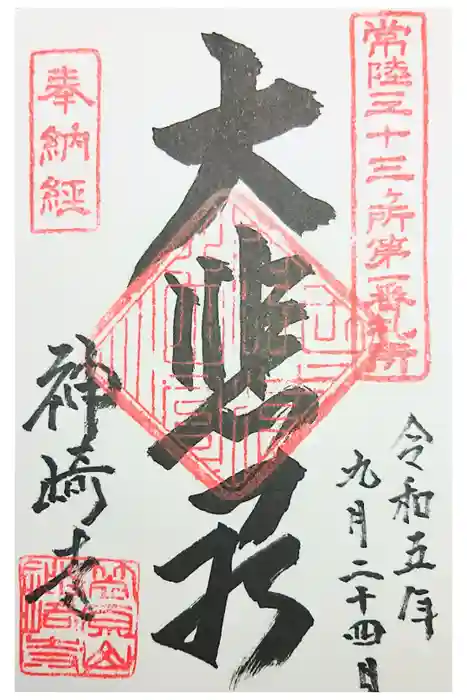 常陸三十三ヶ所第一番札所
令和五年
九月二十四日
大悲殿
奉納経
神崎寺
神崎寺